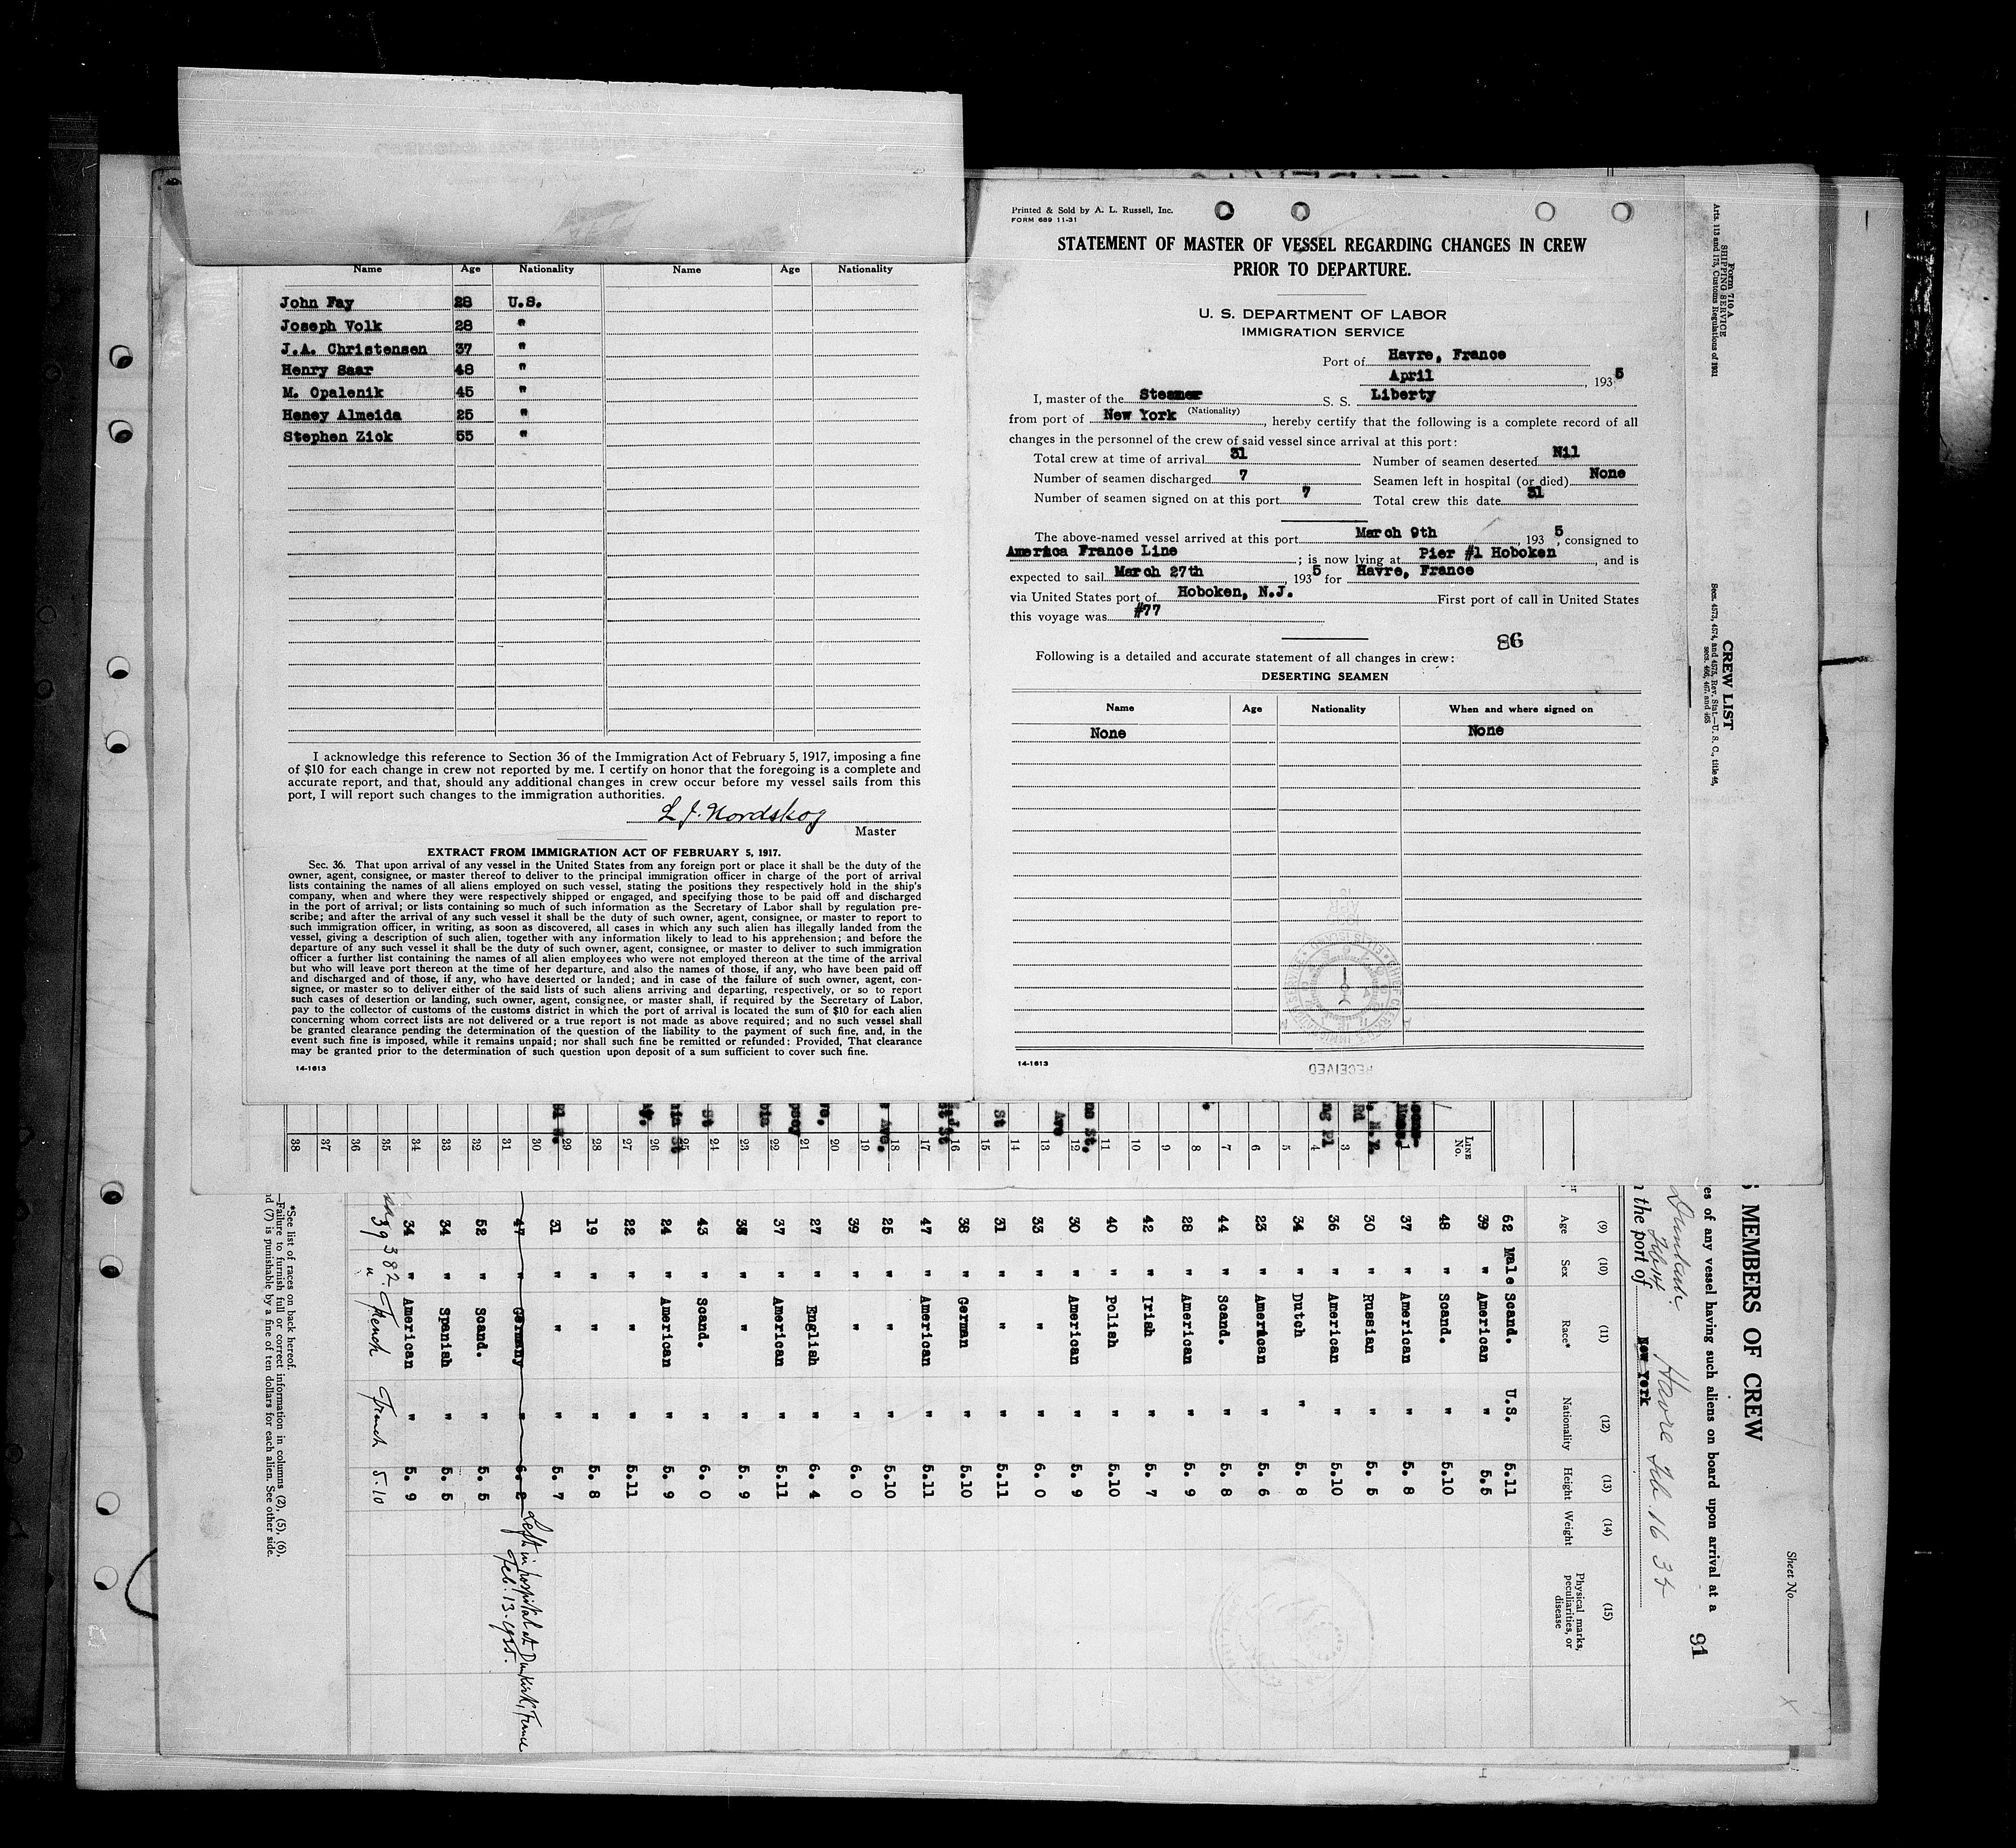 Name Age Nationality Name Age Nationality
John Fay 28 U.S.
Joseph Volk 28 "
J.A. Christensen 37 "
Henry Saar 48 "
M. Opalenik 45 "
Heney Almeida 25 "
Stephen Zick 55 "
I acknowledge this reference to Section 36 of the Immigration Act of February 5, 1917, imposing a fine
of $10 for each change in crew not reported by me. I certify on honor that the foregoing is a complete and
accurate report, and that, should any additional changes in crew occur before my vessel sails from this
port, I will report such changes to the immigration authorities.
L J. Nordskog
Master
EXTRACT FROM IMMIGRATION ACT OF FEBRUARY 5, 1917.
Sec. 36. That upon arrival of any vessel in the United States from any foreign port or place it shall be the duty of the
owner, agent, consignee, or master thereof to deliver to the principal immigration officer in charge of the port of arrival
lists containing the names of all aliens employed on such vessel, stating the positions they respectively hold in the ship's
company, when and where they were respectively shipped or engaged, and specifying those to be paid off and discharged
in the port of arrival; or lists containing so much of such information as the Secretary of Labor shall by regulation pre-
scribe; and after the arrival of any such vessel it shall be the duty of such owner, agent, consignee, or master to report to
such immigration officer, in writing, as soon as discovered, all cases in which any such alien has illegally landed from the
vessel, giving a description of such alien, together with any information likely to lead to his apprehension; and before the
departure of any such vessel it shall be the duty of such owner, agent, consignee, or master to deliver to such immigration
officer a further list containing the names of all alien employees who were not employed thereon at the time of the arrival
but who will leave port thereon at the time of her departure, and also the names of those, if any, who have been paid off
and discharged and of those, if any, who have deserted or landed; and in case of the failure of such owner, agent, con-
signee, or master so to deliver either of the said lists of such aliens arriving and departing, respectively, or so to report
such cases of desertion or landing, such owner, agent, consignee, or master shall, if required by the Secretary of Labor,
pay to the collector of customs of the customs district in which the port of arrival is located the sum of $10 for each alien
concerning whom correct lists are not delivered or a true report is not made as above required; and no such vessel shall
be granted clearance pending the determination of the question of the liability to the payment of such fine, and, in the
event such fine is imposed, while it remains unpaid; nor shall such fine be remitted or refunded: Provided, That clearance
may be granted prior to the determination of such question upon deposit of a sum sufficient to cover such fine.
14-1613
Printed & Sold by A. L. Russell, Inc.
FORM 689 11-31
STATEMENT OF MASTER OF VESSEL REGARDING CHANGES IN CREW
PRIOR TO DEPARTURE.
U. S. DEPARTMENT OF LABOR
IMMIGRATION SERVICE
Port of Havre, France
April , 193 5
I, master of the Steamer S. S. Liberty
(Nationality)
from port of New York , hereby certify that the following is a complete record of all
changes in the personnel of the crew of said vessel since arrival at this port:
Total crew at time of arrival 31 Number of seamen deserted Nil
Number of seamen discharged 7 Seamen left in hospital (or died) None
Number of seamen signed on at this port 7 Total crew this date 31
The above-named vessel arrived at this port March 9th , 193 5 , consigned to
America France Line ; is now lying at Pier #1 Hoboken , and is
expected to sail March 27th , 193 5 for Havre, France
via United States port of Hoboken, N.J. First port of call in United States
this voyage was #77
86
Following is a detailed and accurate statement of all changes in crew:
DESERTING SEAMEN
Name Age Nationality When and where signed on
None None
RECEIVED
14-1613
Form 710 A
SHIPPING SERVICE
Arts. 113 and 175, Customs Regulations of 1931
CREW LIST
Secs. 4573, 4574, and 4575, Rev. Stat.—U. S. C., title 46,
secs. 466, 467, and 465
LINE No.
1 3 4 5 6 7 8 9 10 11 12 13 14 15 16 17 18 19 20 21 22 23 24 25 26 27 28 29 30 31 32 33 34 35 36 37 38
Sheet No.
MEMBERS OF CREW
91
of any vessel having such aliens on board upon arrival at a
the port of New York
Havre Feb. 16 35
(9) (10) (11) (12) (13) (14) (15)
Age Sex Race* Nationality Height Weight Physical marks, peculiarities, or disease
62 Male Scand. U.S. 5.11
39 " American " 5.5
48 " Scand. " 5.10
37 " American " 5. 8
30 " Russian " 5. 5
36 " American " 5.10
34 " Dutch " 5. 8
23 " American " 5. 6
44 " Scand. " 5. 8
28 " American " 5. 9
42 " Irish " 5. 7
40 " Polish " 5.10
30 " American " 5. 9
33 " " " 6. 0
31 " " " 5.11
38 " German " 5.10
47 " American " 5.11
25 " " " 5.10
39 " " " 6. 0
27 " English " 6. 4
37 " American " 5.11
" " " 5. 9
43 " Scand. " 6. 0
24 " American " 5. 9
22 " " " 5.11
19 " " " 5. 8
31 " " " 5. 7
47 " Germany " 6. 2 Left in hospital at Dunkirk, France
Feb. 13-1935.
52 " Scand. " 5. 5
34 " Spanish " 5. 5
34 " American " 5. 9
39 " French French 5-10
*See list of races on back hereof.
—Failure to furnish full or correct information in columns (2), (5), (6),
(7) is punishable by a fine of ten dollars for each alien. See other side.